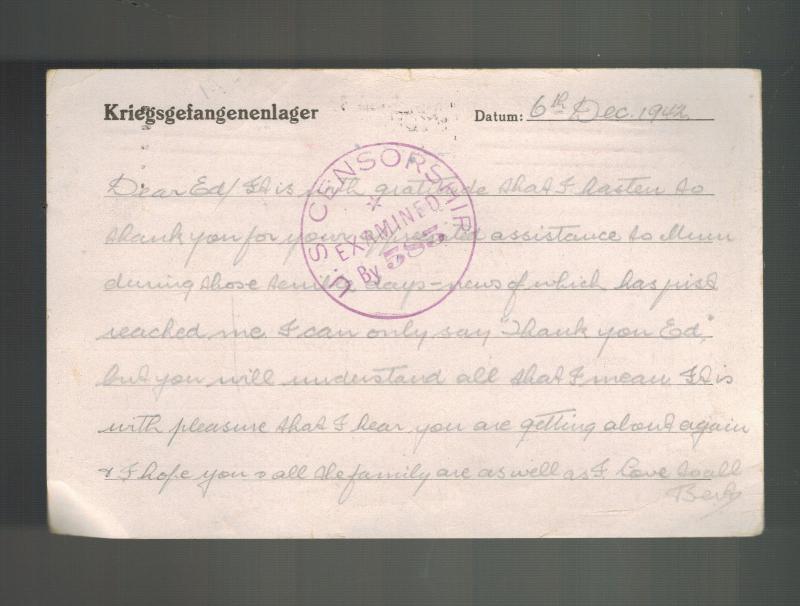 Kriegsgefangenenlager Datum: 6th Dec. 1942
U.S. CENSORSHIP
EXAMINED
By 383
Dear Ed/ It is with gratitude that I hasten to
thank you for your appreciated assistance to Mum
during those terrible days - news of which has just
reached me. I can only say "Thank you Ed,"
but you will understand all that I mean. It is
with pleasure that I hear you are getting about again
& I hope you & all the family are as well as I. Love to all